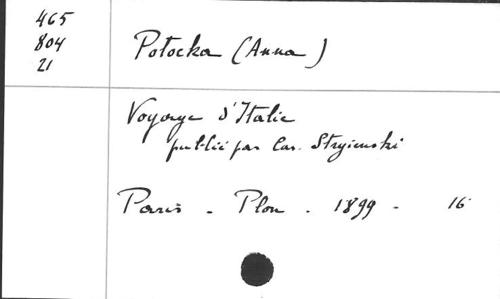 465
804
21
Potocka (Anna)
Voyage d'Italie
publié par Cas. Stryienski
Paris - Plon - 1899 - 16